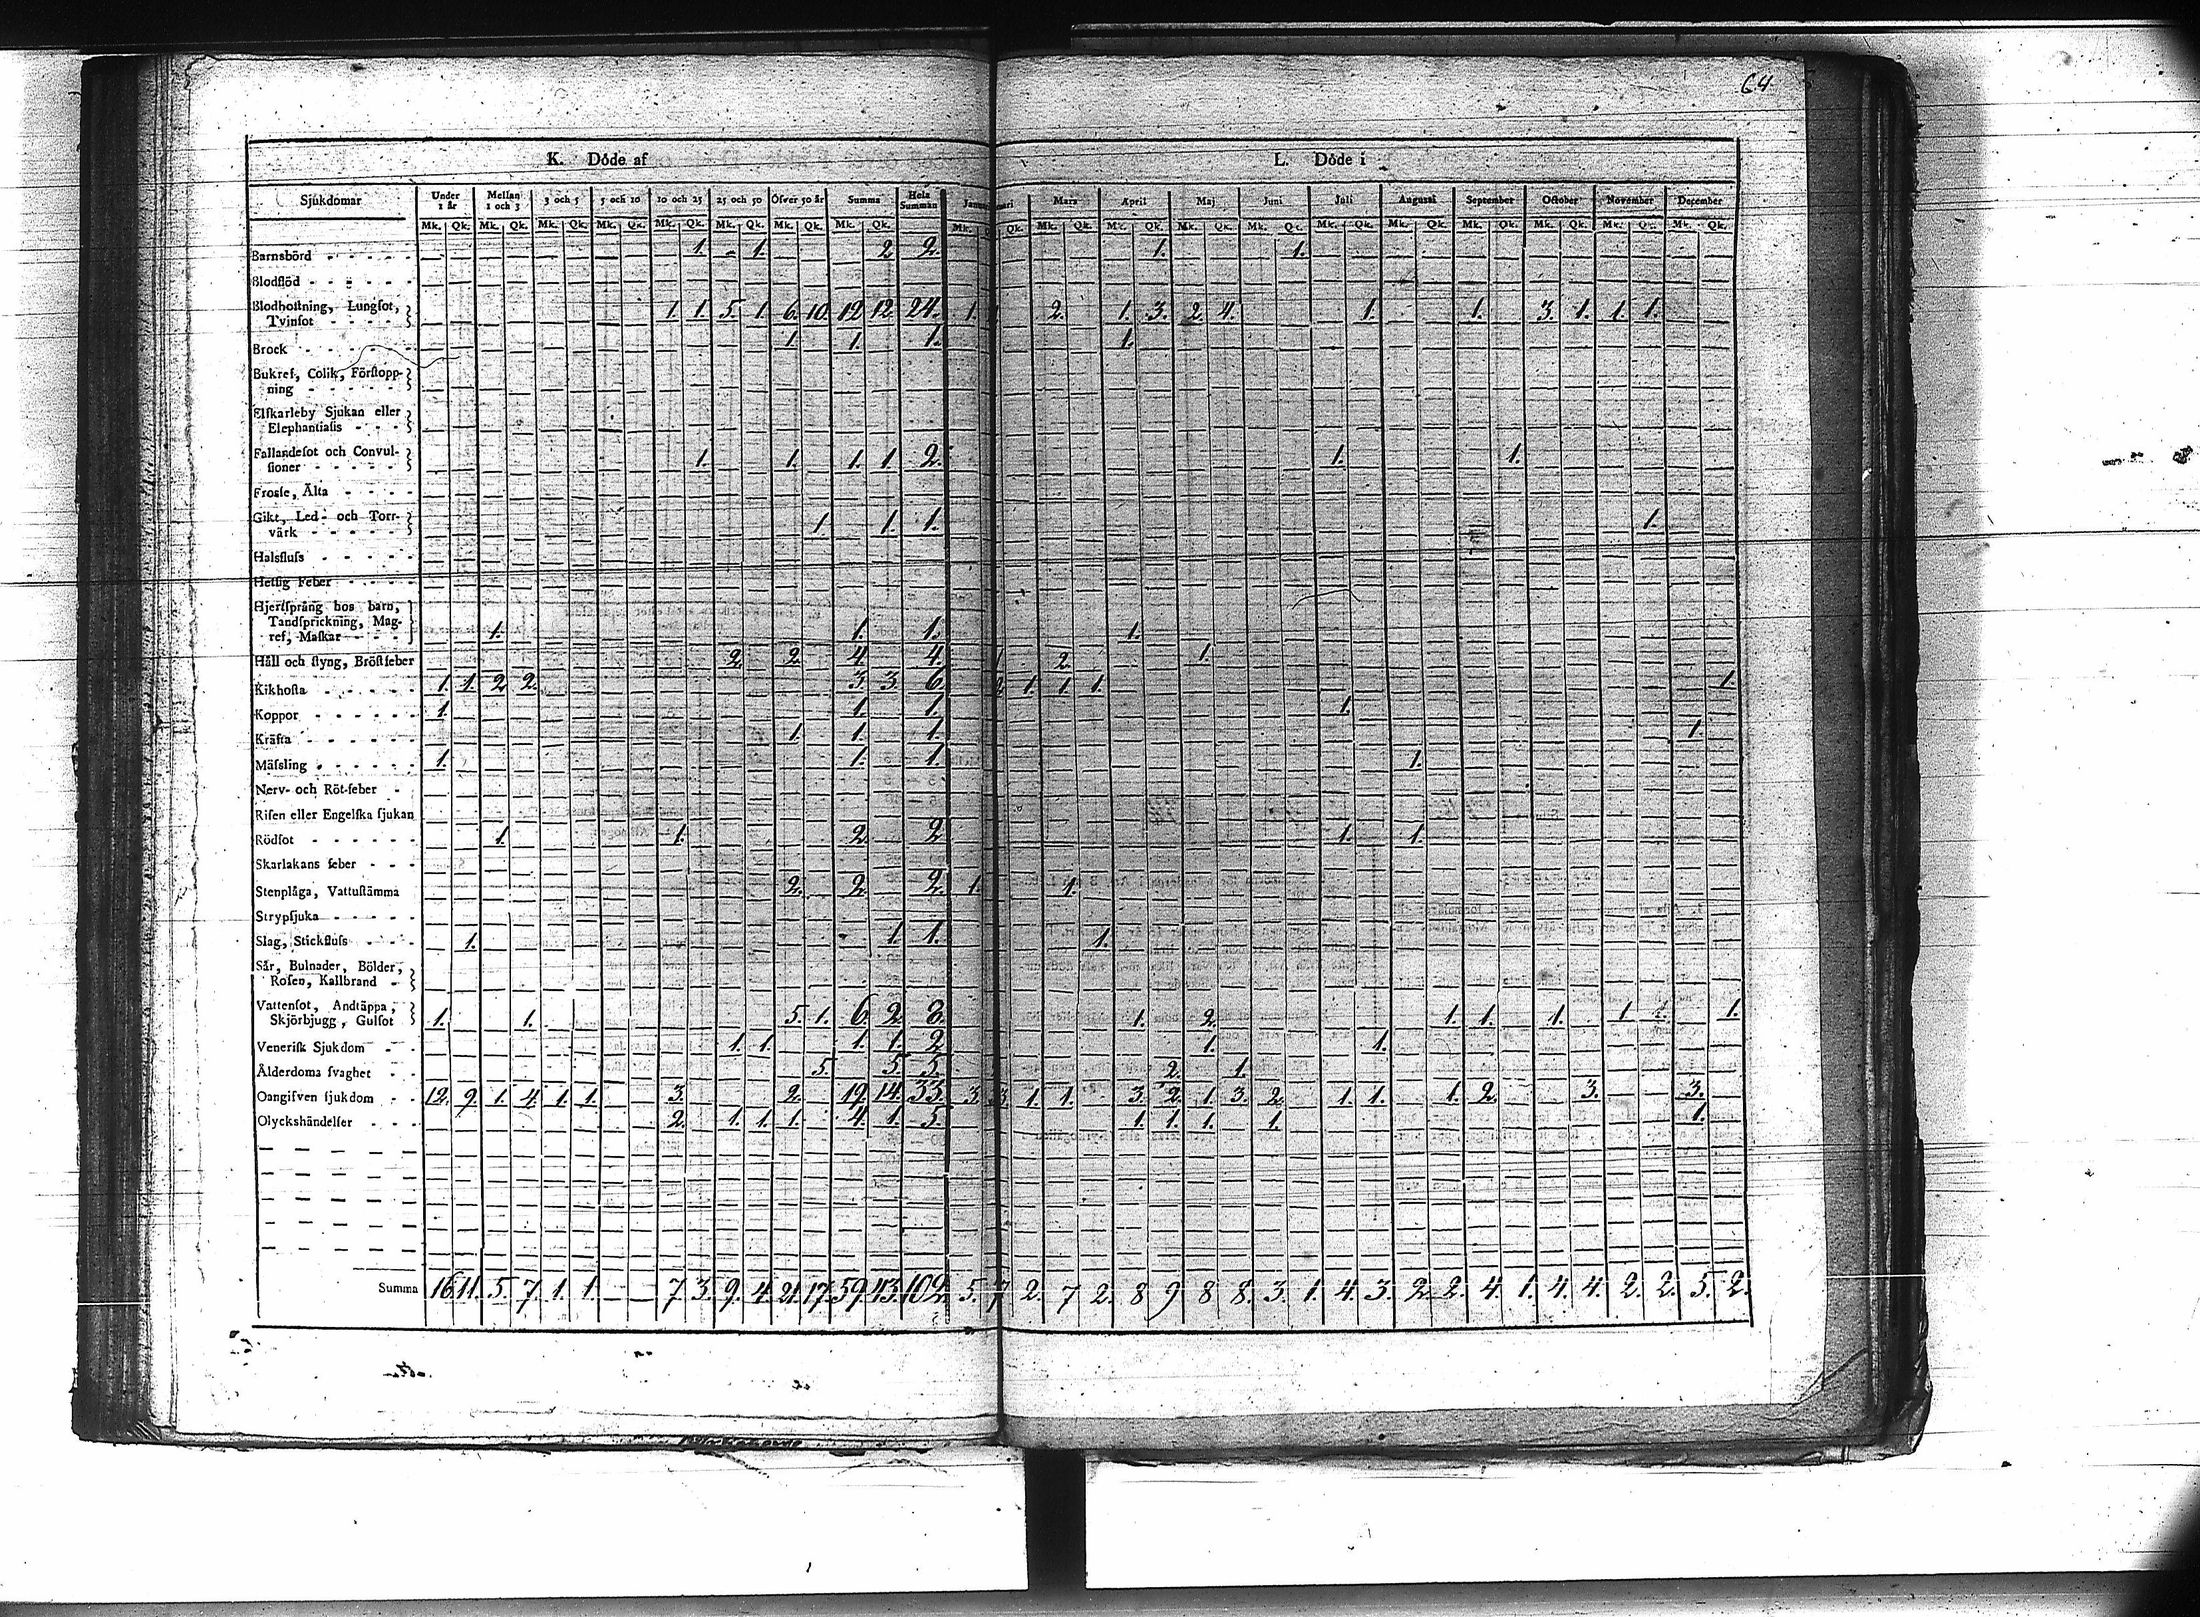 64
K. Döde af L. Döde i
Sjukdomar Under 1 år Mellan 1 och 3 3 och 5 5 och 10 10 och 25 25 och 50 Öfver 50 år Summa Hela Summan Januari Mars April Maj Juni Juli Augusti September October November December
Mk. Qk. Mk. Qk. Mk. Qk. Mk. Qk. Mk. Qk. Mk. Qk. Mk. Qk. Mk. Qk. Mk. Qk. Mk. Qk. Mk. Qk. Mk. Qk. Mk. Qk. Mk. Qk. Mk. Qk. Mk. Qk. Mk. Qk. Mk. Qk. Mk. Qk.
Barnsbörd 1. 1. 2 2. 1. 1.
Blodflöd
Blodhostning, Lungsot,
Tvinsot 1. 1. 5. 1. 6. 10. 12 12. 24. 1. 2. 1. 3. 2. 4. 1. 1. 3. 1. 1. 1.
Brock 1. 1. 1. 1.
Bukref, Colik, Förstopp-
ning
Elfkarleby Sjukan eller
Elephantiasis
Fallandesot och Convul-
sioner 1. 1. 1. 1. 2. 1. 1.
Frosse, Älta
Gikt, Led- och Torr-
värk 1. 1. 1. 1.
Halsfluss
Hetsig Feber
Hjertsprång hos barn,
Tandsprickning, Mag-
ref, Maskar 1. 1. 1. 1.
Håll och styng, Bröstfeber 2. 2. 4 4. 1 2. 1.
Kikhosta 1. 1. 2 2. 3. 3. 6. 2 1. 1. 1. 1.
Koppor 1. 1. 1. 1.
Kräfta 1. 1. 1. 1.
Mässling 1. 1. 1. 1.
Nerv- och Röt-feber
Risen eller Engelska sjukan
Rödsot 1. 1. 2. 2 1. 1.
Skarlakans feber
Stenplåga, Vattustämma 2. 2. 2. 1. 1.
Strypsjuka
Slag, Stickfluss 1. 1. 1. 1.
Sår, Bulnader, Bölder,
Rosen, Kallbrand
Vattensot, Andtäppa,
Skjörbjugg, Gulsot 1. 1. 5. 1. 6. 2. 8. 1. 2. 1. 1. 1. 1. 1. 1.
Venerisk Sjukdom 1. 1. 1. 1. 2 1. 1.
Ålderdoms svaghet 5. 5. 5. 2. 1.
Oangifven sjukdom 12. 9. 1. 4. 1. 1. 3. 2. 19. 14. 33. 3. 3. 1. 1. 3. 2. 1. 3. 2. 1. 1. 1. 2. 3. 3.
Olyckshändelser 2. 1. 1. 1. 4. 1. 5. 1. 1. 1. 1. 1.
Summa 16. 11. 5. 7. 1. 1. 7. 3. 9. 4. 21. 17. 59. 43. 102. 5. 7 2. 7 2. 8 9 8 8. 3. 1. 4. 3. 2. 2. 4. 1. 4. 4. 2. 2. 5. 2.